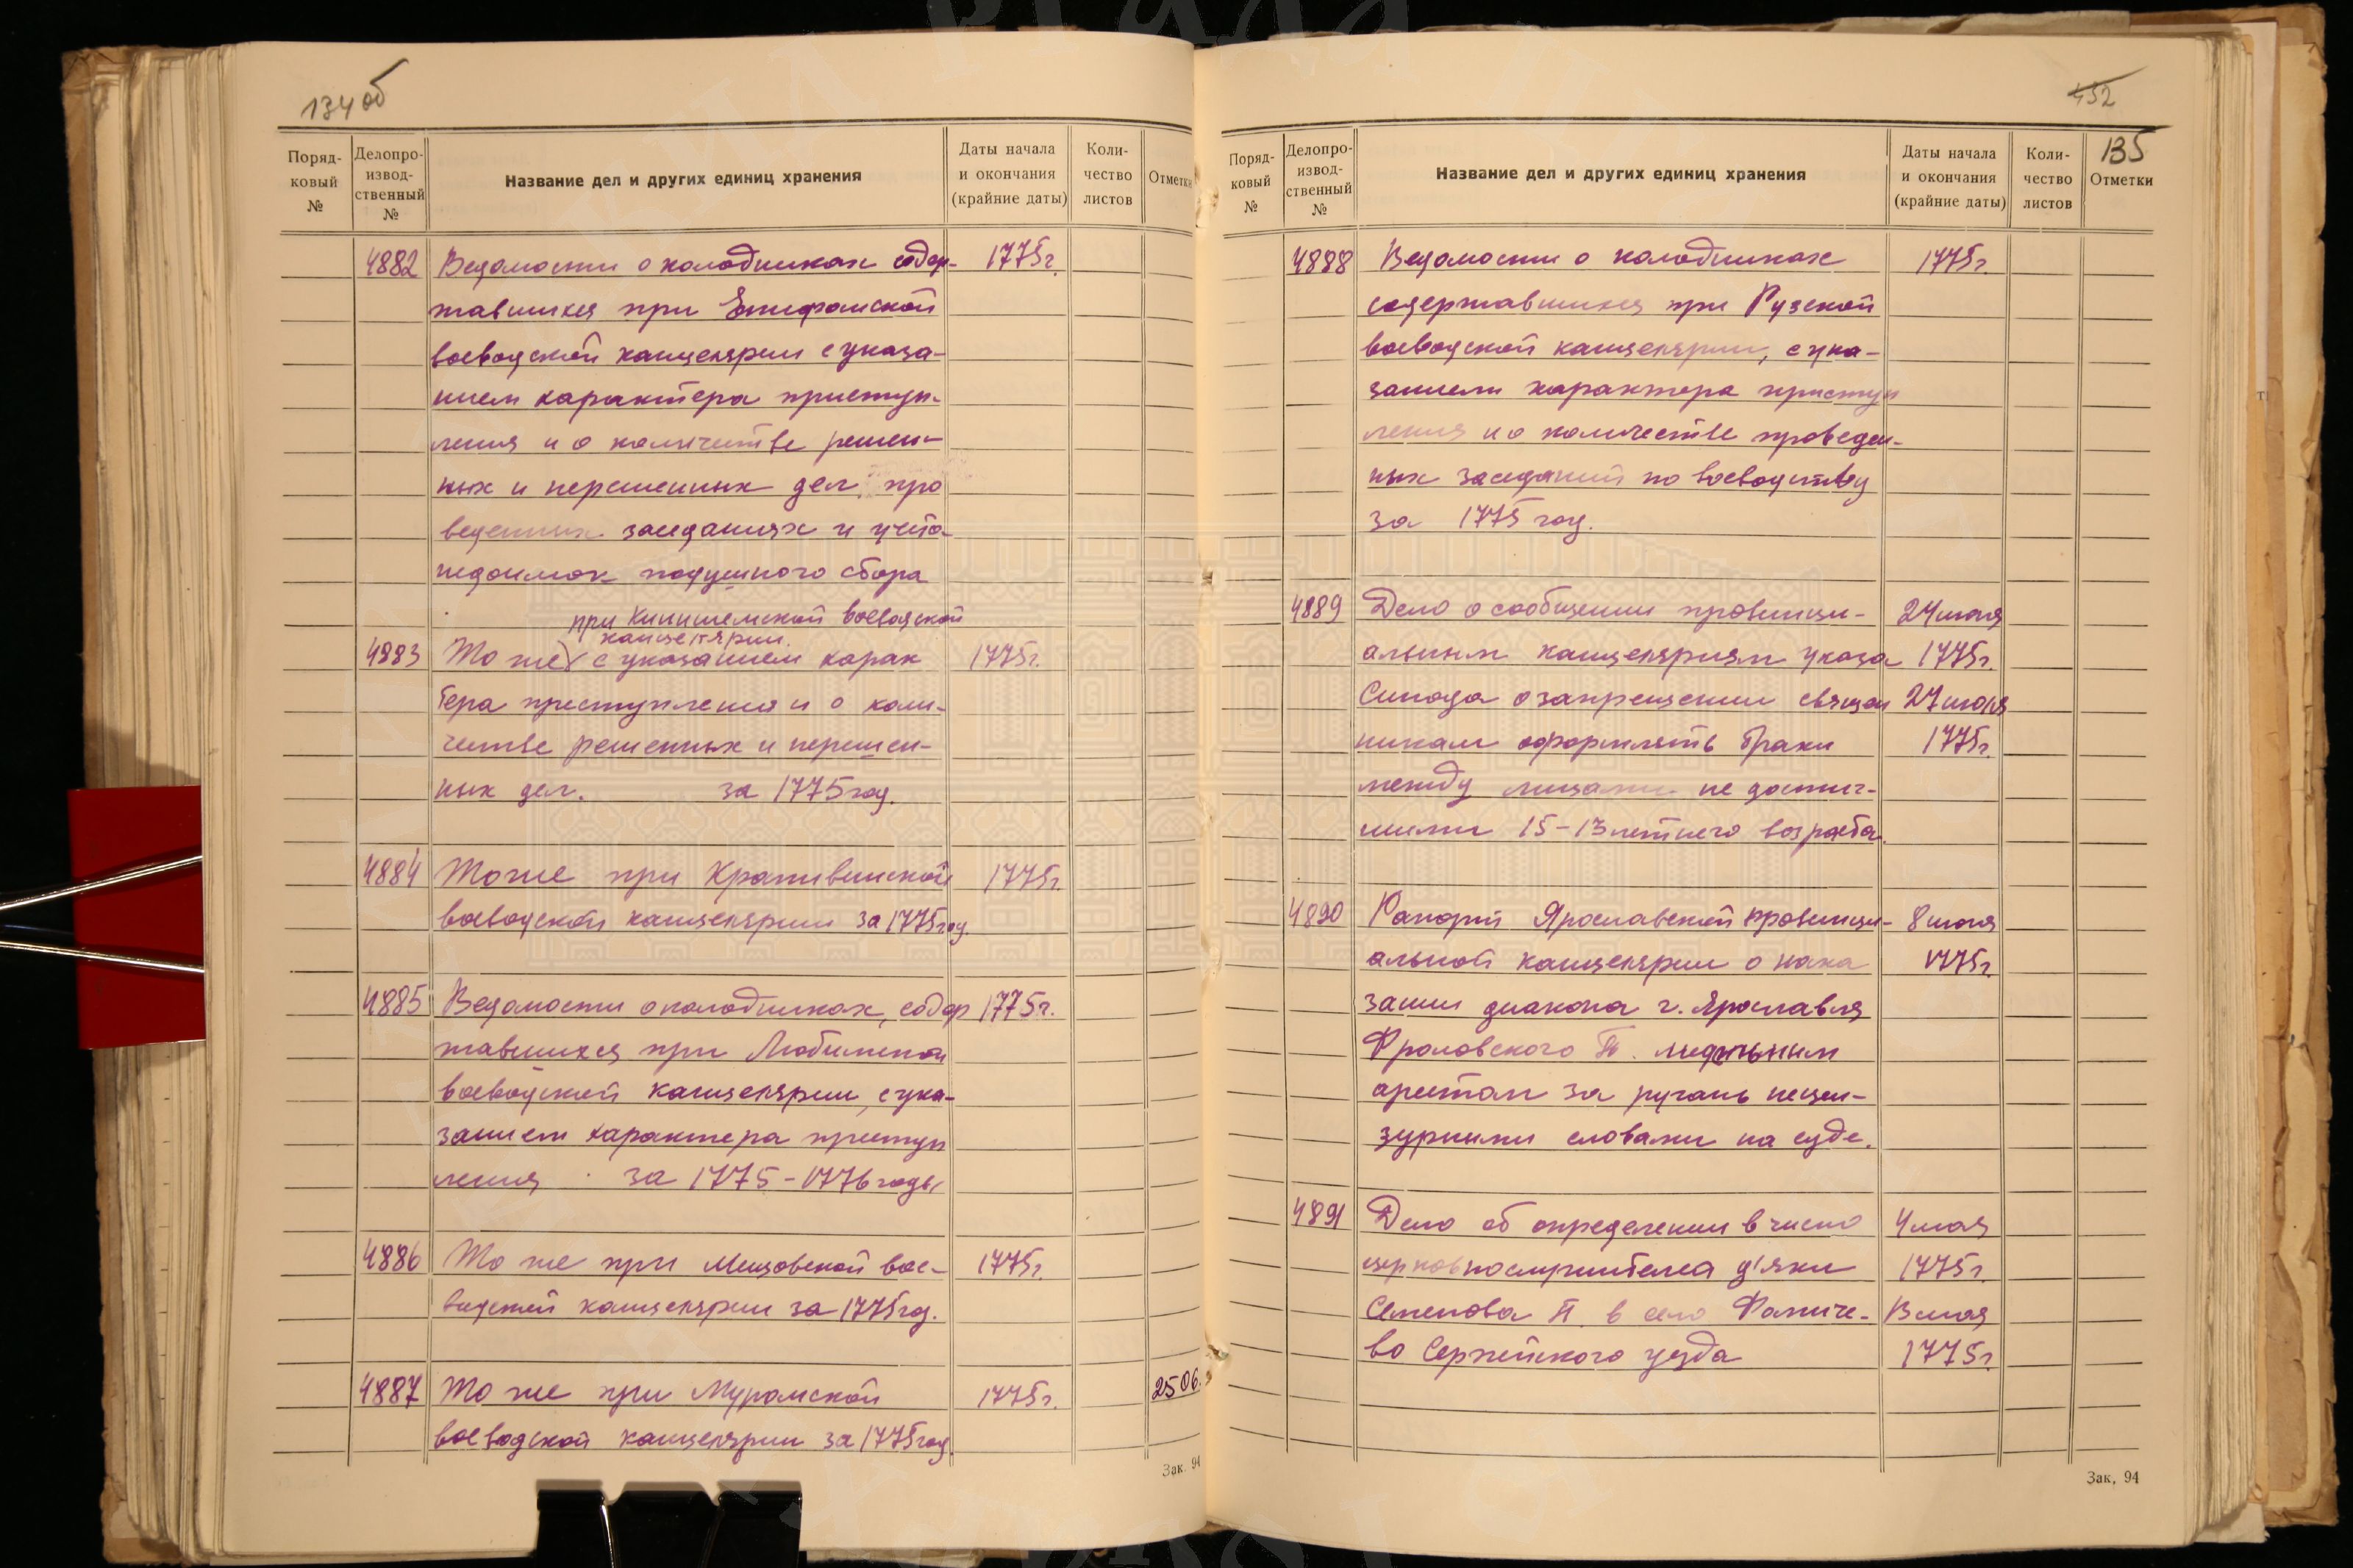 134об
Поряд-
ковый
№
Делопро-
извод-
ственный
№
Название дел и других единиц хранения
Даты начала
и окончания
(крайние даты)
Коли-
чество
листов
Отметки
4882 Ведомости о колодниках содер- 1775г.
жавшихся при Епифанской
воеводской канцелярии с указа-
нием характера преступ-
ления и о количестве решен-
ных и нерешенных дел, про
веденных заседаниях и учета
недоимок подушного сбора
при Кинишемской воеводской
канцелярии.
4883 То же с указанием харак 1775г.
тера преступления и о коли-
честве решенных и нерешен-
ных дел. за 1775 год.
4884 То же при Крапивинской 1775г.
воеводской канцелярии за 1775 год.
4885 Ведомости о колодниках, содер 1775г.
жавшихся при Любимской
воеводской канцелярии, с ука-
занием характера преступ
ления за 1775-1776 годы
4886 То же при Мещовской вое- 1775г.
водской канцелярии за 1775 год.
4887 То же при Муромской 1775г. 2506.
воеводской канцелярии за 1775 год.
Зак. 94
452
135
Поряд-
ковый
№
Делопро-
извод-
ственный
№
Название дел и других единиц хранения
Даты начала
и окончания
(крайние даты)
Коли-
чество
листов
Отметки
4888 Ведомости о колодниках 1775г.
содержавшихся при Рузской
воеводской канцелярии, с ука-
занием характера преступ
ления и о количестве проведен-
ных заседаний по воеводству
за 1775 год.
4889 Дело о сообщении провинци- 24 июля
альным канцеляриям указа 1775г.
Синода о запрещении священ 27 июля
никам оформлять браки 1775г.
между лицами не достиг-
шими 15-13 летнего возраста.
4890 Рапорт Ярославской провинци- 8 июля
альной канцелярии о нака 1775г.
зании диакона г. Ярославля
Фроловского П. недельным
арестом за ругань нецен-
зурными словами на суде.
4891 Дело об определении в число 4 мая
церковнослужителей дьяки 1775г.
Семенова П. в село Фомиче- 13 мая
во Серпейского уезда 1775г.
Зак. 94